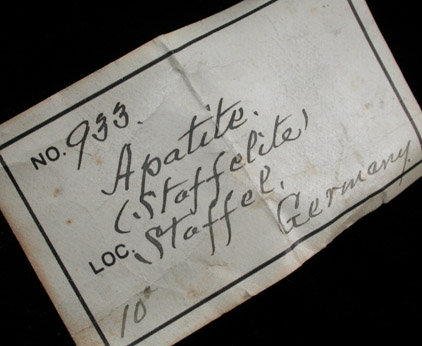 NO. 933.
Apatite.
(Staffelite)
LOC. Staffel.
Germany
10